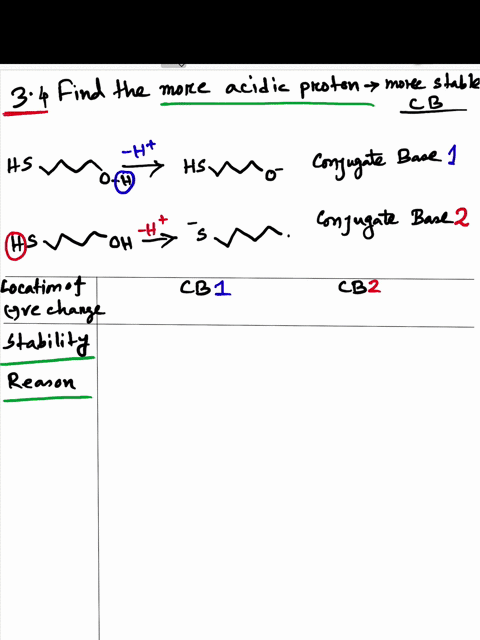 3.4 Find the more acidic proton → more stable
CB
-H+
HS O-H → HS O-
Conjugate Base 1
-H+
HS OH → -S .
Conjugate Base 2
Location of
(-)ve change
CB1 CB2
Stability
Reason